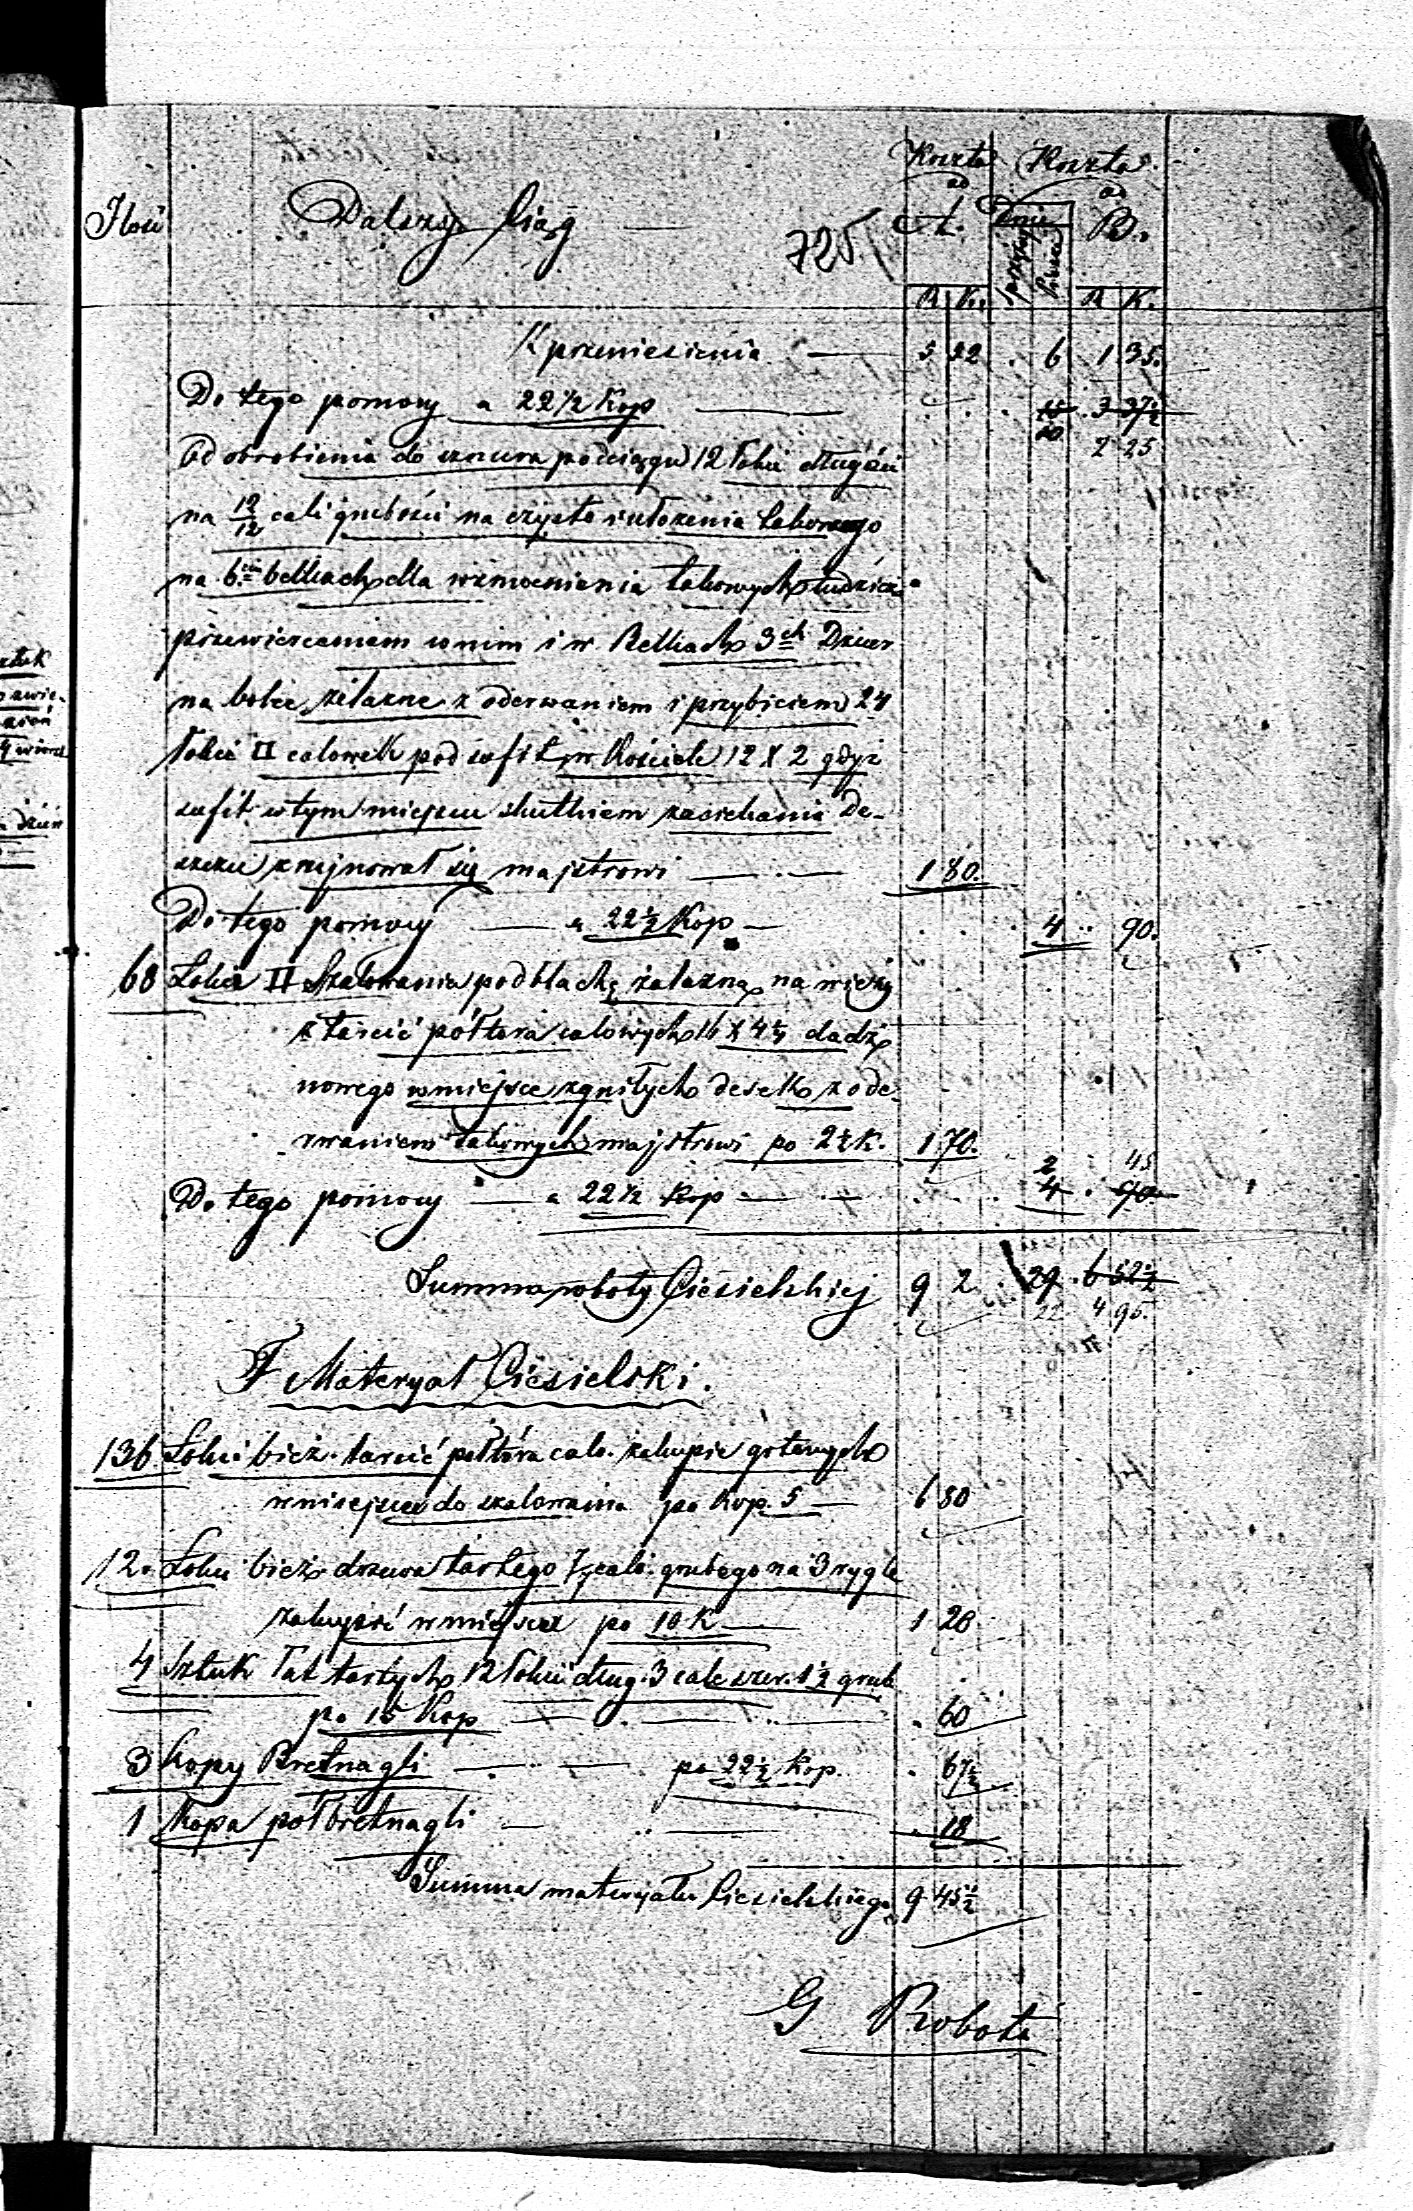 Koszta Koszta
ad ad
Ilość Dalszy Ciąg 725. A. Dnie B.
R K. R K.
Z przeniesienia — 5 52 . 6 1 35.
Do tego pomocy a 22 1/2 Kop — . . 15 . 3 37 1/2
10 2 25
Od obrobienia do sznura podciągu 12 łokci długości
na 12/12 cali grubości na czysto i ułożenia takowego
na 6ciu belkach dla wzmocnienia takowych tudzież
przewiercaniem w nim i w Belkach 3ch Dziur
na bolce żelazne z oderwaniem i przybiciem 24
łokci □ calówek pod sufit w Kościele 12 X 2 gdyż
sufit w tym miejscu skutkiem zaciekania De-
szczu zrujnował się majstrowi — 1 80.
Do tego pomocy — a 22 1/2 Kop — . . . 4 . . 90.
68 Łokci □ Szalowania pod blachę żelazną na wieży
z tarcic półtora calowych 16 X 4 1/4 dadź
nowego w miejsce zgniłych desek z ode-
rwaniem takowych majstrowi po 2 1/2 K. 1 70.
2 45
Do tego pomocy — a 22 1/2 Kop — . . . 4 . 90.
Summa roboty Ciesielskiej 9 2 . 29 . 6 52 1/2
22 4 95.
F Materyał Ciesielski.
136 Łokci bież. tarcic półtora calo. zakupie gotowych
w miejscu do szalowania po Kop. 5 — 6 80
12. Łokci bież. drzewa tartego cali. grubego na 3 rygle
zakupić w miejscu po 10 K — 1 20
4 Sztuk łat tartych 12 łokci dług. 3 cale szer. 1 1/2 grub
po 15 Kop — . 60
3 Kopy Bretnagli — po 22 1/2 Kop. . 67 1/2
1 Kopa półbretnagli — . 18
Summa materyału Ciesielskiego 9 45 1/2
G Robota